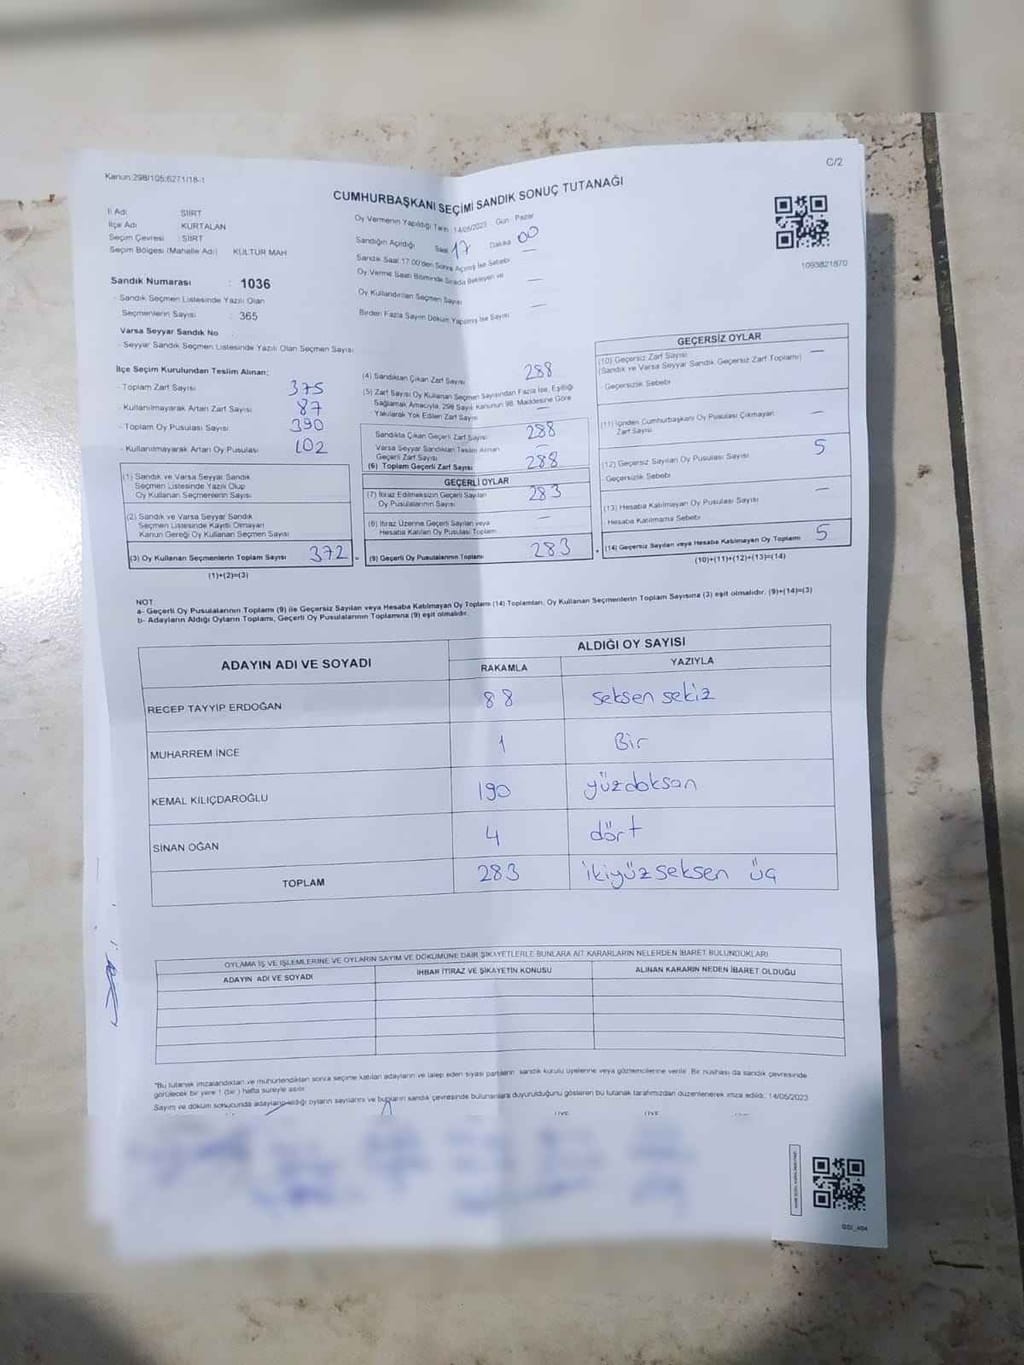 C/2
Kanun:298/105;6271/18-1
CUMHURBAŞKANI SEÇİMİ SANDIK SONUÇ TUTANAĞI
İl Adı : SİİRT
İlçe Adı : KURTALAN
Seçim Çevresi : SİİRT
Seçim Bölgesi (Mahalle Adı) KÜLTÜR MAH
Sandık Numarası : 1036
- Sandık Seçmen Listesinde Yazılı Olan
Seçmenlerin Sayısı : 365
Varsa Seyyar Sandık No
- Seyyar Sandık Seçmen Listesinde Yazılı Olan Seçmen Sayısı
Oy Vermenin Yapıldığı Tarih 14/05/2023 Gün: Pazar
Sandığın Açıldığı Saat 17 Dakika 00
Sandık Saat 17:00'den Sonra Açılmış İse Sebebi —
Oy Verme Saati Bitiminde Sırada Bekleyen ve
Oy Kullandırılan Seçmen Sayısı —
Birden Fazla Sayım Döküm Yapılmış İse Sayısı —
1093821870
İlçe Seçim Kurulundan Teslim Alınan;
- Toplam Zarf Sayısı 375
- Kullanılmayarak Artan Zarf Sayısı 87
- Toplam Oy Pusulası Sayısı 390
- Kullanılmayarak Artan Oy Pusulası 102
(1) Sandık ve Varsa Seyyar Sandık
Seçmen Listesinde Yazılı Olup
Oy Kullanan Seçmenlerin Sayısı
(2) Sandık ve Varsa Seyyar Sandık
Seçmen Listesinde Kayıtlı Olmayan
Kanun Gereği Oy Kullanan Seçmen Sayısı
(3) Oy Kullanan Seçmenlerin Toplam Sayısı 372
(1)+(2)=(3)
(4) Sandıktan Çıkan Zarf Sayısı 288
(5) Zarf Sayısı Oy Kullanan Seçmen Sayısından Fazla İse, Eşitliği
Sağlamak Amacıyla, 298 Sayılı Kanunun 98. Maddesine Göre
Yakılarak Yok Edilen Zarf Sayısı —
Sandıkta Çıkan Geçerli Zarf Sayısı 288
Varsa Seyyar Sandıktan Teslim Alınan
Geçerli Zarf Sayısı —
(6) Toplam Geçerli Zarf Sayısı 288
GEÇERLİ OYLAR
(7) İtiraz Edilmeksizin Geçerli Sayılan
Oy Pusulalarının Sayısı 283
(8) İtiraz Üzerine Geçerli Sayılan veya
Hesaba Katılan Oy Pusulası Toplamı —
= (9) Geçerli Oy Pusulalarının Toplamı 283
GEÇERSİZ OYLAR
(10) Geçersiz Zarf Sayısı —
(Sandık ve Varsa Seyyar Sandık Geçersiz Zarf Toplamı)
- Geçersizlik Sebebi
(11) İçinden Cumhurbaşkanı Oy Pusulası Çıkmayan —
Zarf Sayısı
(12) Geçersiz Sayılan Oy Pusulası Sayısı 5
Geçersizlik Sebebi
(13) Hesaba Katılmayan Oy Pusulası Sayısı —
Hesaba Katılmama Sebebi
+ (14) Geçersiz Sayılan veya Hesaba Katılmayan Oy Toplamı 5
(10)+(11)+(12)+(13)=(14)
NOT
a- Geçerli Oy Pusulalarının Toplamı (9) ile Geçersiz Sayılan veya Hesaba Katılmayan Oy Toplamı (14) Toplamları, Oy Kullanan Seçmenlerin Toplam Sayısına (3) eşit olmalıdır. (9)+(14)=(3)
b- Adayların Aldığı Oyların Toplamı, Geçerli Oy Pusulalarının Toplamına (9) eşit olmalıdır.
ADAYIN ADI VE SOYADI ALDIĞI OY SAYISI
RAKAMLA YAZIYLA
RECEP TAYYİP ERDOĞAN 88 seksen sekiz
MUHARREM İNCE 1 Bir
KEMAL KILIÇDAROĞLU 190 yüzdoksan
SİNAN OĞAN 4 dört
TOPLAM 283 ikiyüzseksen üç
OYLAMA İŞ VE İŞLEMLERİNE VE OYLARIN SAYIM VE DÖKÜMÜNE DAİR ŞİKAYETLERLE BUNLARA AİT KARARLARIN NELERDEN İBARET BULUNDUKLARI
ADAYIN ADI VE SOYADI İHBAR İTİRAZ VE ŞİKAYETİN KONUSU ALINAN KARARIN NEDEN İBARET OLDUĞU
"Bu tutanak imzalandıktan ve mühürlendikten sonra seçime katılan adayların ve talep eden siyasi partilerin sandık kurulu üyelerine veya gözlemcilerine verilir. Bir nüshası da sandık çevresinde
görülecek bir yere 1 (bir) hafta süreyle asılır.
Sayım ve döküm sonucunda adayların aldığı oyların sayılarını ve bunların sandık çevresinde bulunanlara duyurulduğunu gösteren bu tutanak tarafımızdan düzenlenerek imza edildi. 14/05/2023
ÜYE ÜYE